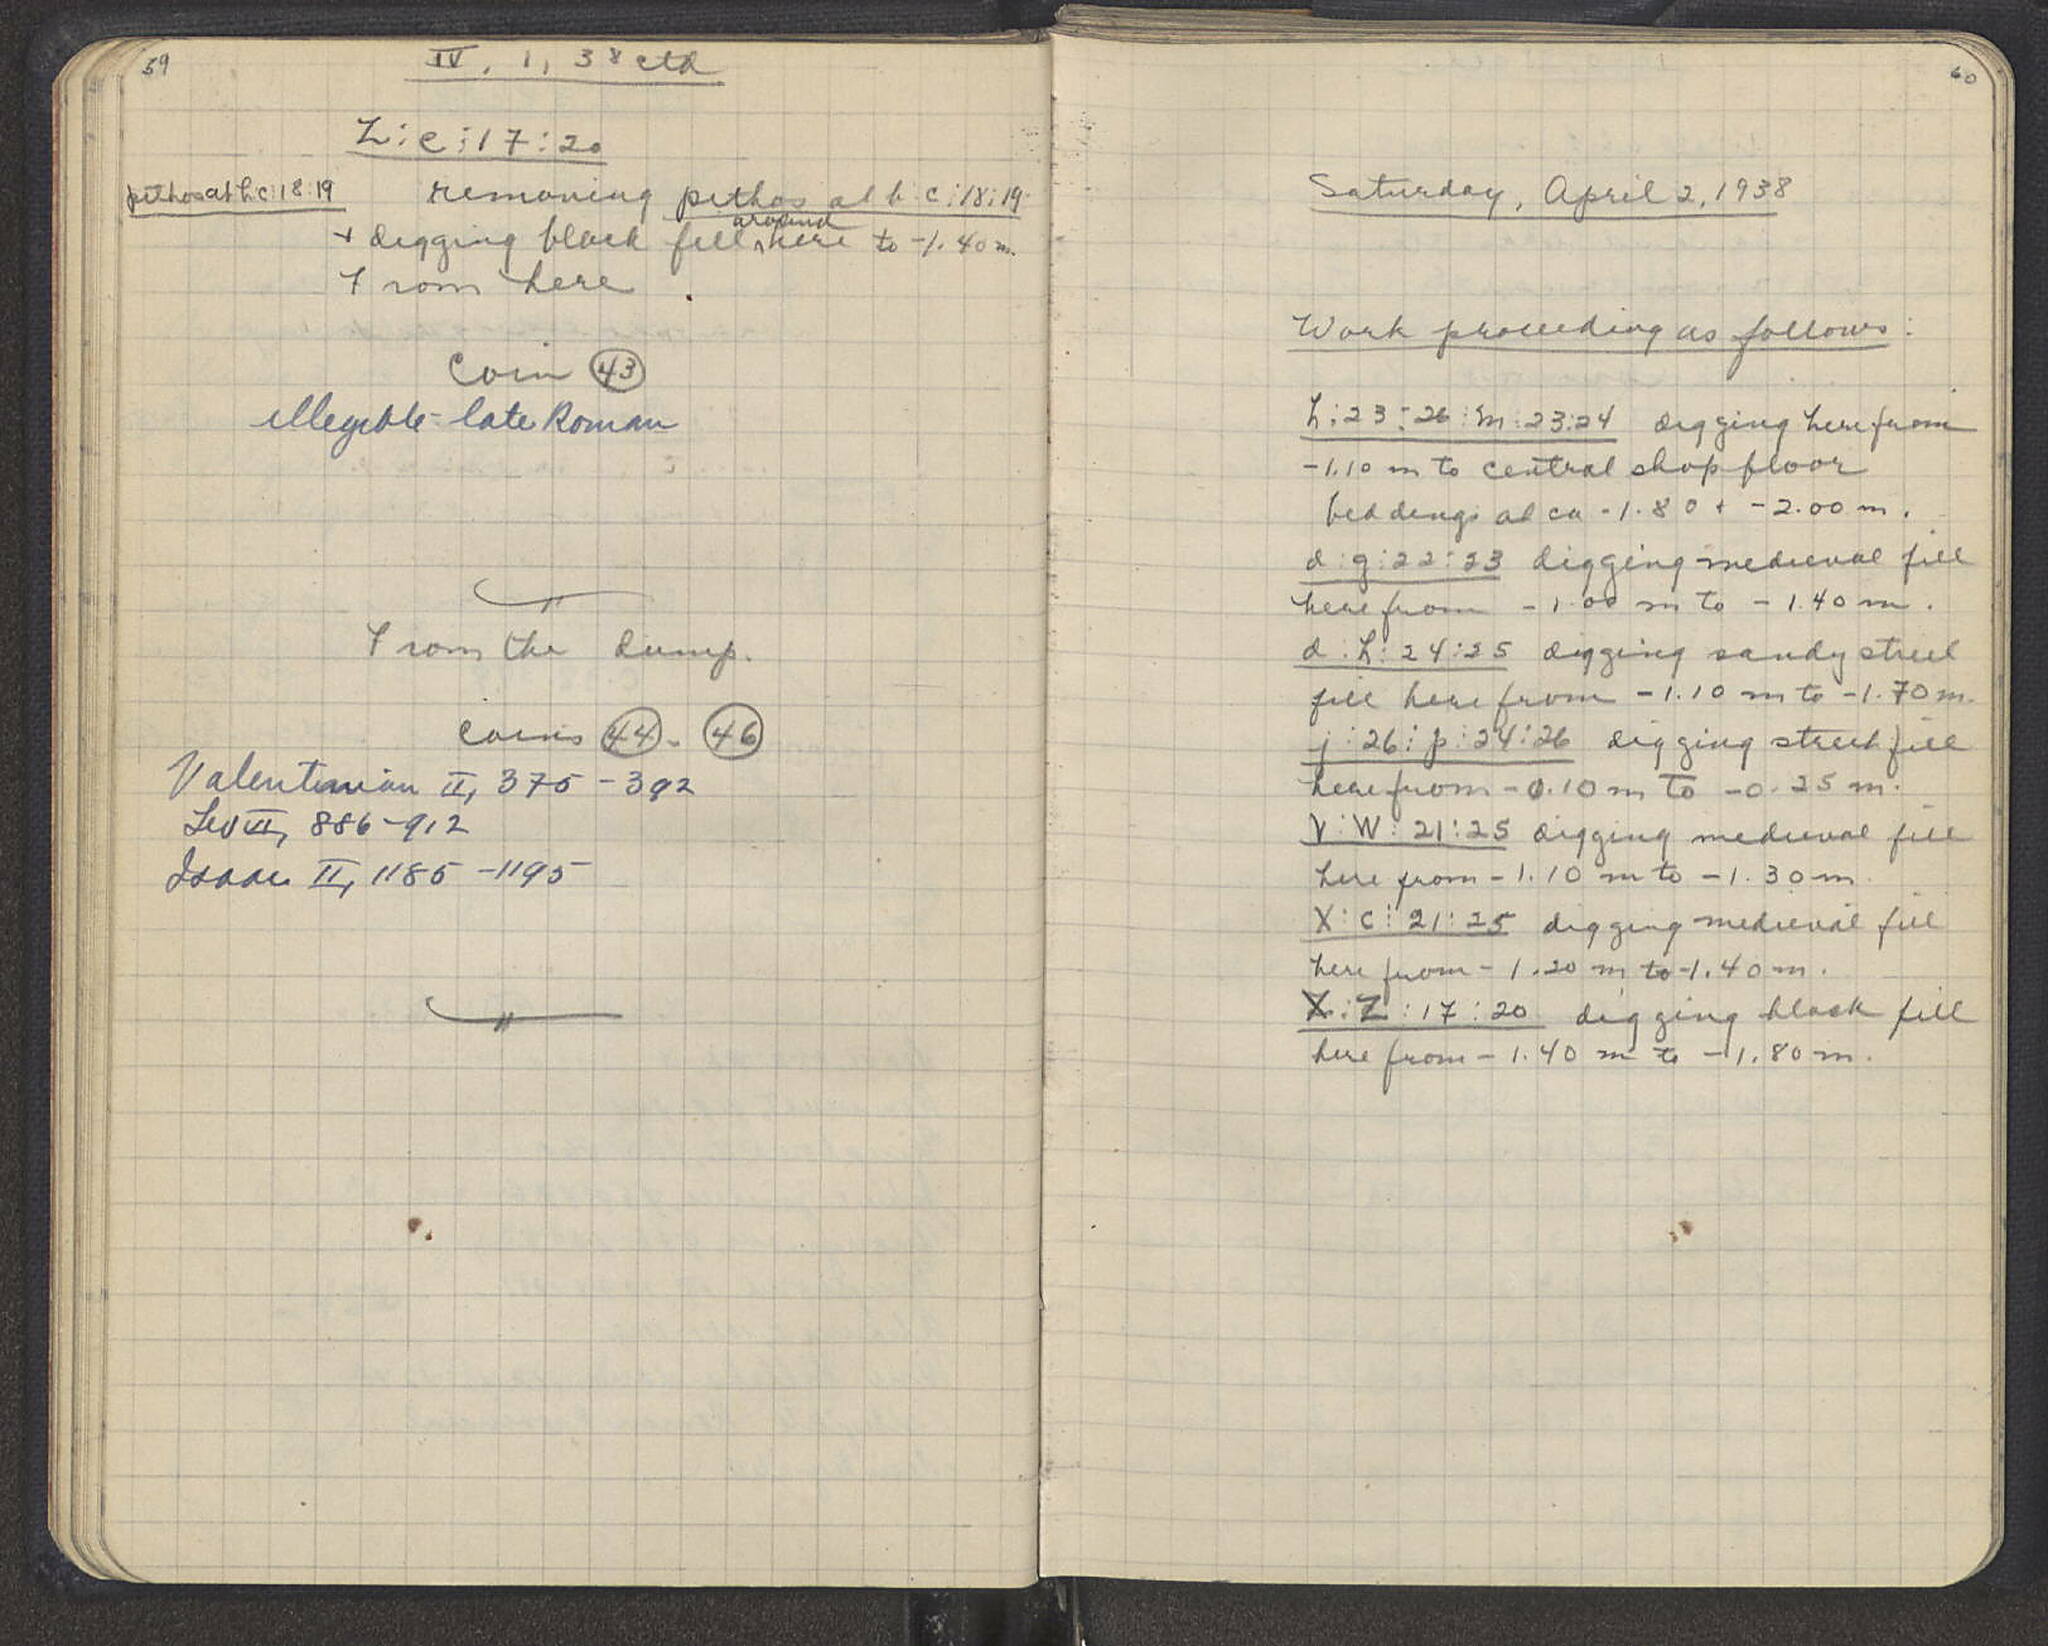 59
IV, 1, 38 ctd
Z:c:17:20
pithos at b:c:18:19
removing pithos at b:c:18:19
+ digging black fill around here to -1.40 m.
From here
coin 43
illegible - late Roman
From the dump.
coins 44 - 46
Valentinian II, 375-392
Leo VI, 886-912
Isaac II, 1185-1195
60
Saturday, April 2, 1938
Work proceeding as follows:
h:23:26:m:23:24 digging here from
-1.10 m to central shop floor
beddings at ca -1.80 + -2.00 m.
d:g:22:23 digging medieval fill
here from -1.00 m to -1.40 m.
d:h:24:25 digging sandy street
fill here from -1.10 m to -1.70 m.
j:26:p:24:26 digging street fill
here from -0.10 m to -0.25 m.
V:W:21:25 digging medieval fill
here from -1.10 m to -1.30 m.
X:c:21:25 digging medieval fill
here from -1.20 m to -1.40 m.
X:Z:17:20 digging black fill
here from -1.40 m to -1.80 m.